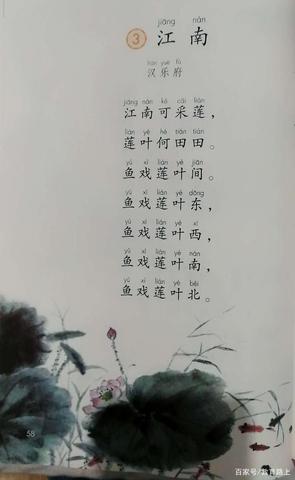 jiāng nán
3 江南
hàn yuè fǔ
汉乐府
jiāng nán kě cǎi lián
江南可采莲，
lián yè hé tián tián
莲叶何田田。
yú xì lián yè jiān
鱼戏莲叶间。
yú xì lián yè dōng
鱼戏莲叶东，
yú xì lián yè xī
鱼戏莲叶西，
yú xì lián yè nán
鱼戏莲叶南，
yú xì lián yè běi
鱼戏莲叶北。
58